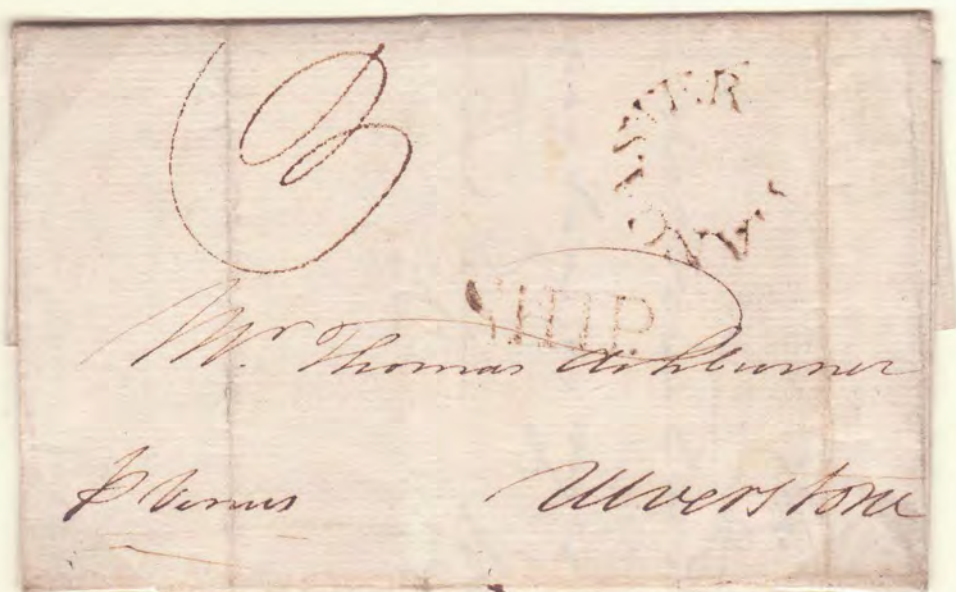 LANCASTER
SHIP
Mr. Thomas Ashburner
p Venus
Ulverstone